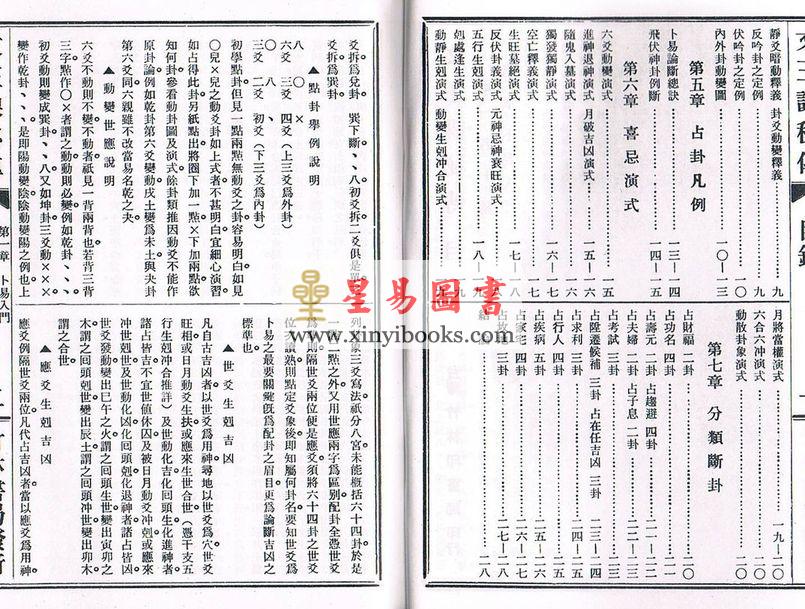 靜爻暗動釋義 卦爻動變釋義……九
反吟卦之定例……一〇
伏吟卦之定例……
內外卦動變圖……一〇—三
第五章 占卦凡例
卜易論斷總訣……一三—四
飛伏神卦例斷……一四—五
第六章 喜忌演式
六爻動變演式……一五
進神退神演式 月破吉凶演式……一五—六
隨鬼入墓演式……一六
獨發獨靜演式……一六—七
空亡釋義演式……一七
生旺墓絕演式……一七—八
反伏卦義演式 元神忌神衰旺演式……一八
五行生剋演式……一八—九
剋處逢生演式……一九
動靜生剋演式 動變生剋冲合演式……
月將當權演式……一九—二〇
六合六冲演式……二〇
動散卦象演式……二〇
第七章 分類斷卦
占財福 二卦……二〇
占功名 四卦……
占壽元 二卦 占趨避 四卦……
占夫婦 二卦 占子息 二卦……
占考試 三卦……
占陞遷候補 三卦 占在任吉凶 三卦……二三—四
占求利 三卦……二四—五
占行人 四卦……
占疾病 五卦……二五—六
占家宅 四卦……
三卦……二七—八
結……二八
星易圖書
www.xinyibooks.com
爻拆爲兌卦 巽下斷、、八初爻拆二爻俱是單
爻拆爲巽卦
▲點卦舉例說明
八 〇 ×
六爻 三爻 四爻(上三爻爲外卦)
三爻 二爻 初爻(下三爻爲內卦)
初學點卦但見一點兩點無動爻之卦容易明白如見
〇兒×兒之動爻卦如上式者不甚明白宜細心演習
如占得此卦另紙點出將圈下加一點×下加兩點欲
知何卦參看動卦圖及演式餘卦類推因動爻不能作
原卦論例如乾卦第六爻變動戌土變爲未土與夬卦
第六爻同六親雖不改當易名乾之夬
▲動變世應說明
六爻不動則不變不動者祇見一背兩背也若背三背
三字點作〇×者謂之動動則必變例如乾卦、、、
初爻動則變成巽卦、、八又如坤卦三爻動×××
變作乾卦、、、是卽陽動變陰陰動變陽之例也上
列
三爻寫法祇分八宮未能概括六十四卦於是
一二點之外又用世應兩字爲區別配卦全憑世爻
爲則隔世爻兩位便是應爻須將六十四卦之世爻
位
讀熟則點定爻象後卽知屬何卦名要知世爻爲
卜易之最要關鍵旣爲配卦之眉目更爲論斷吉凶之
標準也
▲世爻生剋吉凶
凡自占吉凶者以世爻爲用神尋地以世爻爲穴世爻
旺相或日月動爻生扶或應來生世合世(憑干支五
行生剋冲合推詳)及世動化吉化回頭生化進神者
諸占皆吉不宜世値休囚及被日月動爻冲剋或應來
冲世剋世及世動化凶化回頭剋化退神者諸占皆凶
世爻發動變出巳午之火謂之回頭生世變出寅卯之
木謂之回頭剋世變出辰土謂之回頭冲世變出卯木
謂之合世
▲應爻生剋吉凶
應爻例隔世爻兩位凡代占吉凶者當以應爻爲用神
第一章 卜易入門